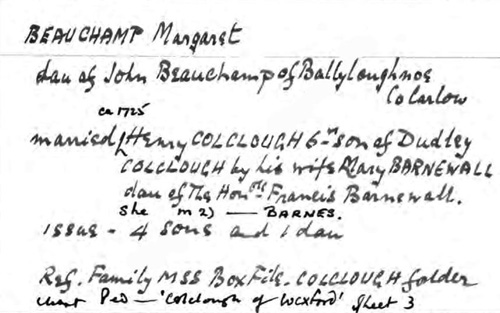 BEAUCHAMP Margaret
dau of John Beauchamp of Ballyloughnoe
Co Carlow
ca 1725
married Henry COLCLOUGH 6th son of Dudley
COLCLOUGH by his wife Mary BARNEWALL
dau of The Honble Francis Barnewall.
She m 2) — BARNES.
issue - 4 sons and 1 dau
Ref. Family MSS Box File. COLCLOUGH folder
Ped — 'Colclough of Wexford' Sheet 3